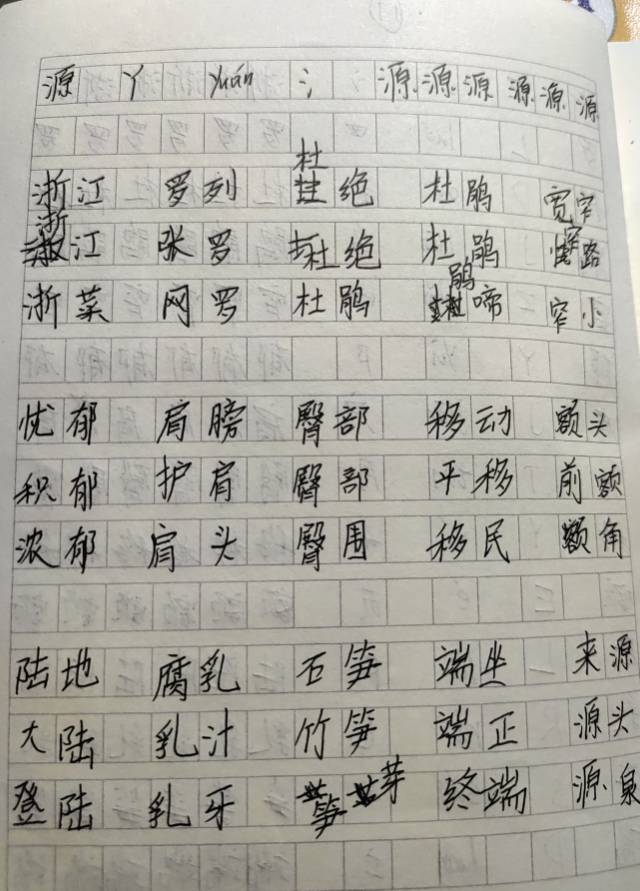 源 丫 yuán 氵 源 源 源 源 源 源
浙江 罗列 杜绝 杜鹃 宽窄
浙江 张罗 杜绝 杜鹃 窄路
浙菜 网罗 杜鹃 杜鹃啼 窄小
忧郁 肩膀 臀部 移动 额头
积郁 护肩 臀部 平移 前额
浓郁 肩头 臀围 移民 额角
陆地 腐乳 石笋 端坐 来源
大陆 乳汁 竹笋 端正 源头
登陆 乳牙 笋芽 终端 源泉